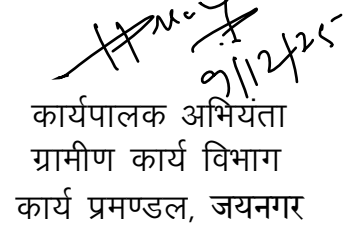 9/12/25
कार्यपालक अभियंता
ग्रामीण कार्य विभाग
कार्य प्रमण्डल, जयनगर